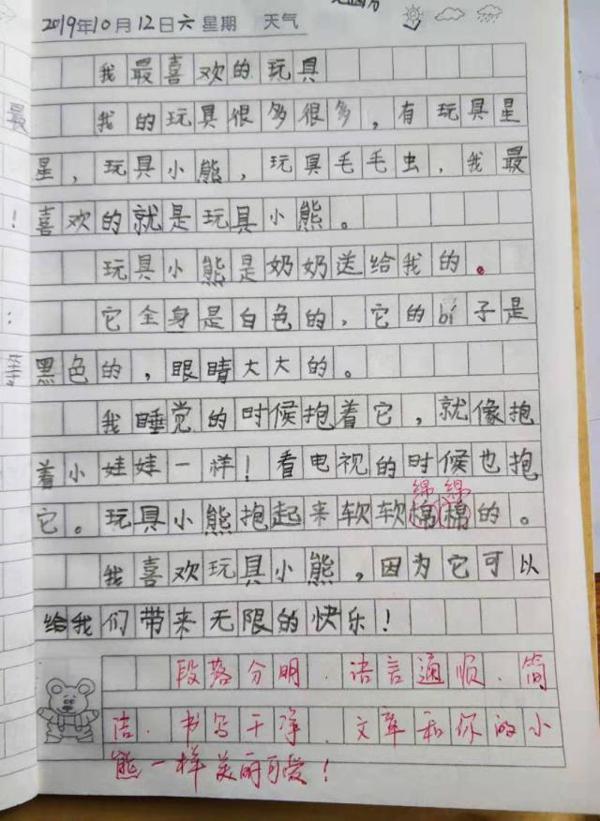 2019年10月12日六星期 天气
我最喜欢的玩具
我的玩具很多很多，有玩具星
星，玩具小熊，玩具毛毛虫，我最
喜欢的就是玩具小熊。
玩具小熊是奶奶送给我的。
它全身是白色的，它的bí子是
黑色的，眼睛大大的。
我睡觉的时候抱着它，就像抱
着小娃娃一样！看电视的时候也抱
绵绵
它。玩具小熊抱起来软软棉棉的。
我喜欢玩具小熊，因为它可以
给我们带来无限的快乐！
段落分明、语言通顺、简
洁、书写干净、文章和你的小
熊一样美丽可爱！
最
！
：